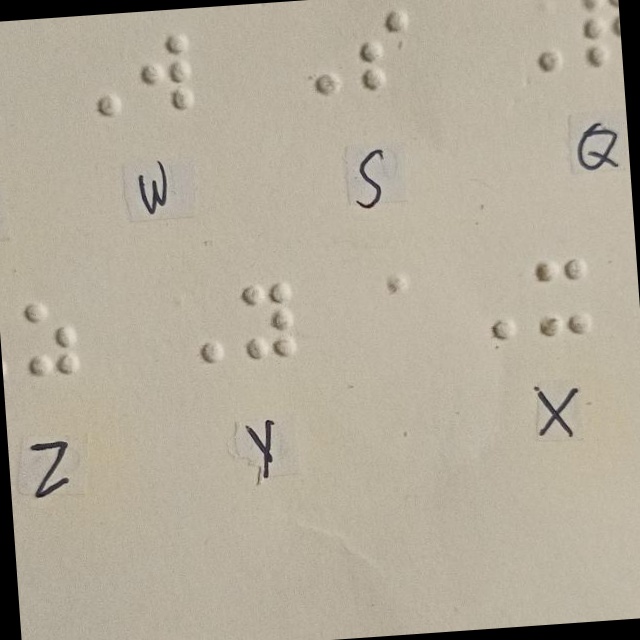 ⠠⠺ ⠠⠎ ⠠⠟
W S Q
⠠⠵ ⠠⠽ ⠠⠭
Z Y X